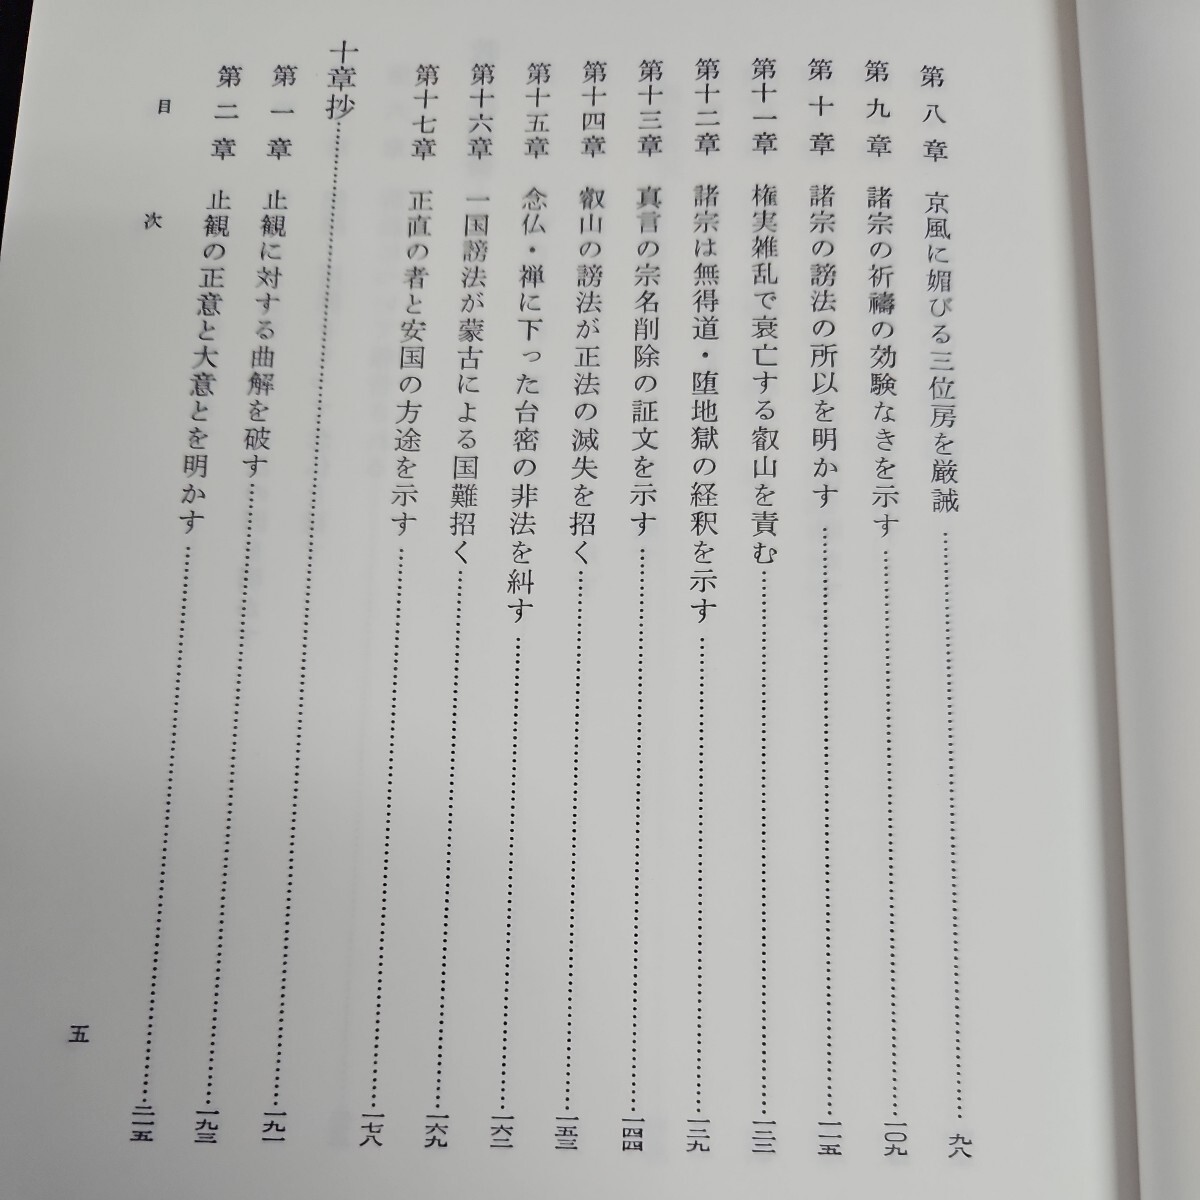 第八章 京風に媚びる三位房を厳誡……九八
第九章 諸宗の祈禱の効験なきを示す……一〇九
第十章 諸宗の謗法の所以を明かす……一一五
第十一章 権実雑乱で衰亡する叡山を責む……一二二
第十二章 諸宗は無得道・堕地獄の経釈を示す……一二九
第十三章 真言の宗名削除の証文を示す……一四四
第十四章 叡山の謗法が正法の滅失を招く……一五三
第十五章 念仏・禅に下った台密の非法を糾す……一六二
第十六章 一国謗法が蒙古による国難招く……一六九
第十七章 正直の者と安国の方途を示す……一七八
十章抄……一九一
第一章 止観に対する曲解を破す……一九三
第二章 止観の正意と大意とを明かす……二一五
目次
五